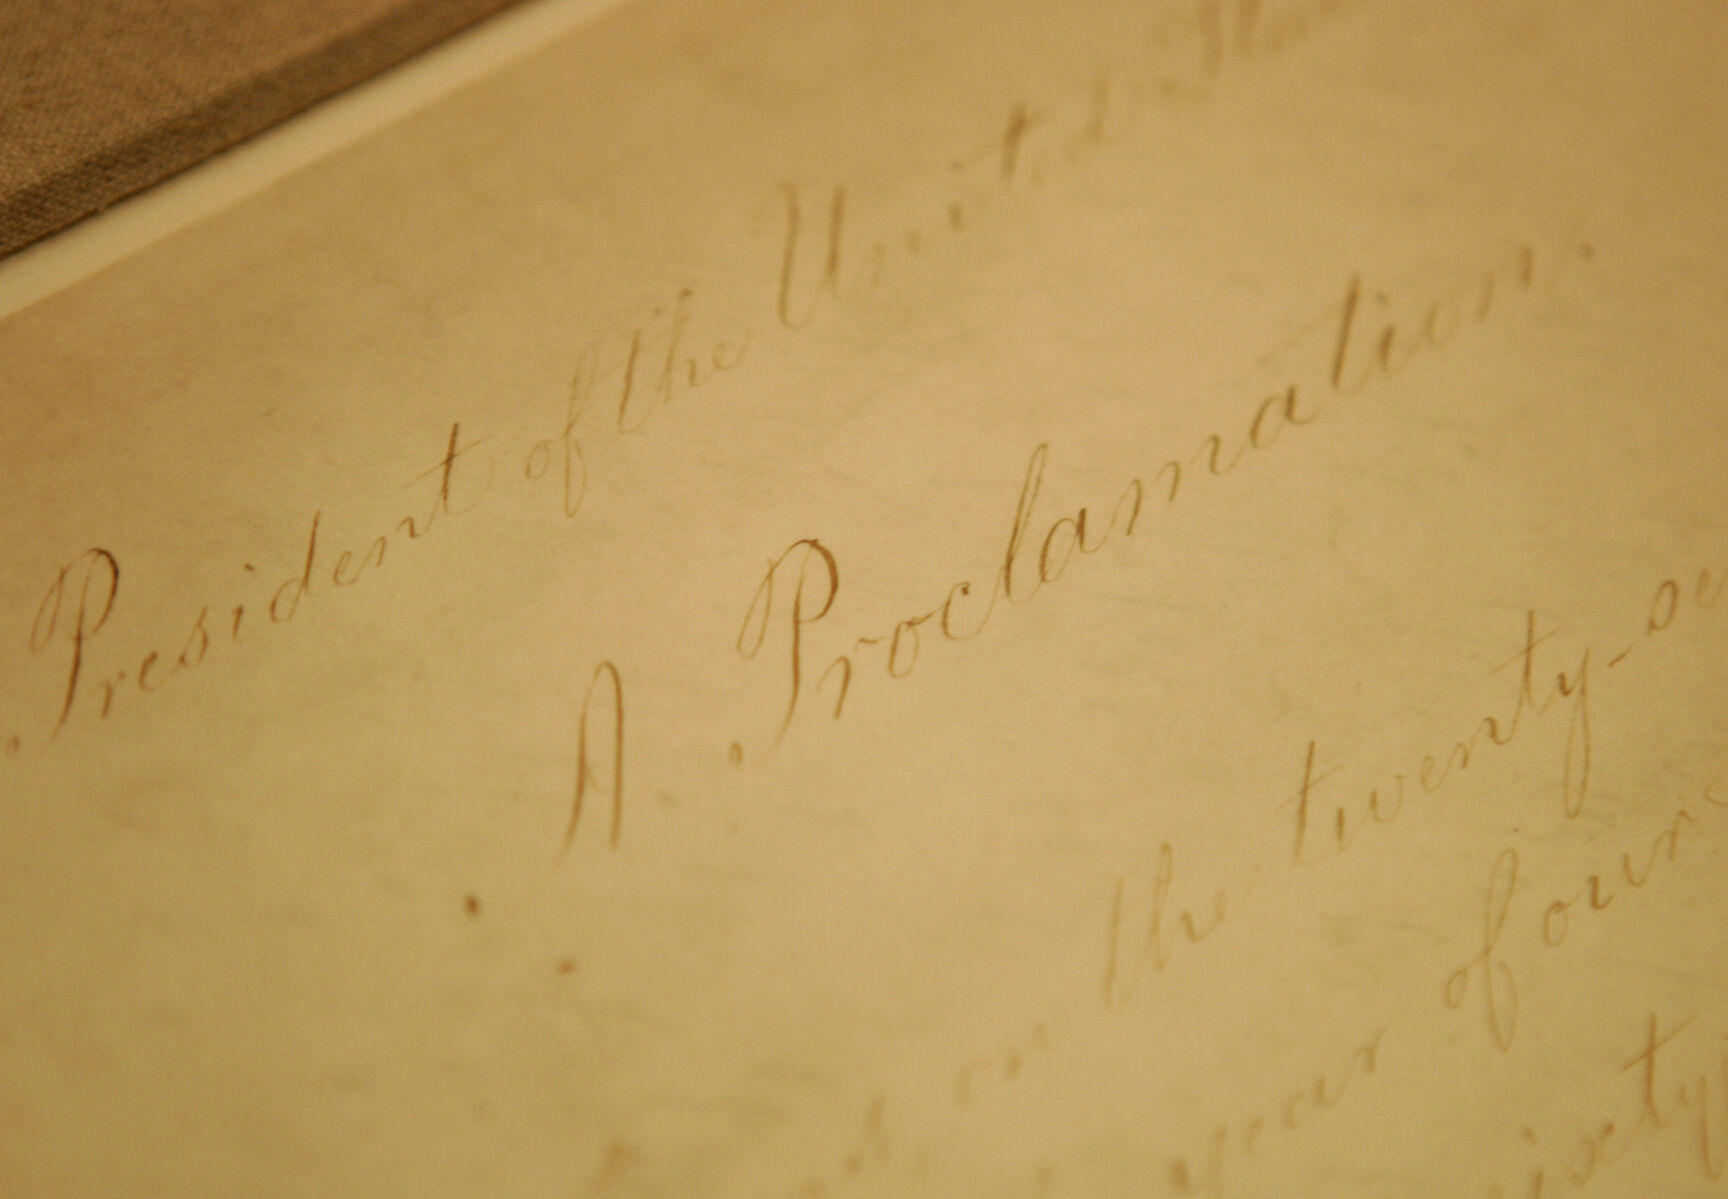 President of the United Sta
A Proclamation.
as on the twenty-se
year of our
sixty